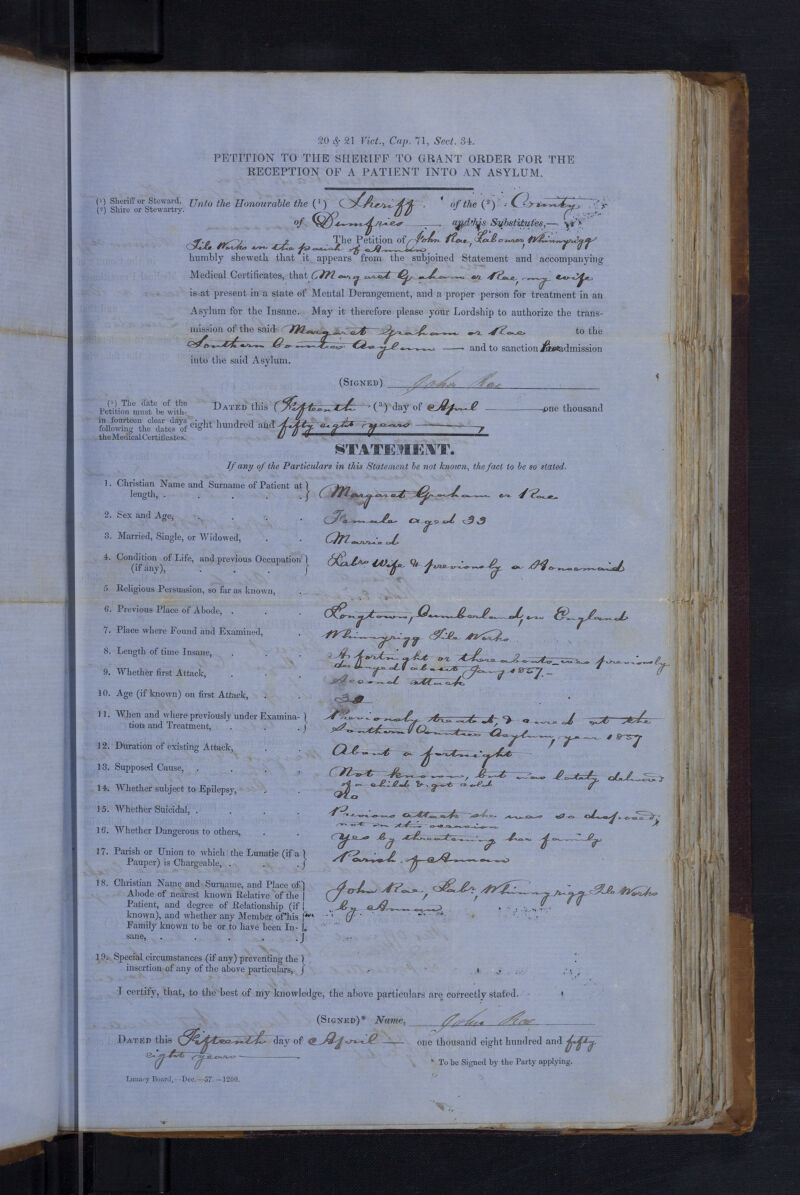 20 & 21 Vict., Cap. 71, Sect. 34.
PETITION TO THE SHERIFF TO GRANT ORDER FOR THE
RECEPTION OF A PATIENT INTO AN ASYLUM.
(1) Sheriff or Steward.
(2) Shire or Stewartry.
Unto the Honourable the (1) Sheriff of the (2) County
of Dumfries and his Substitutes,—
The Petition of John Rae, Labourer Whinnyrigg
Tile Works in the parish of Annan
humbly sheweth that it appears from the subjoined Statement and accompanying
Medical Certificates, that Margaret Graham or Rae, my wife
is at present in a state of Mental Derangement, and a proper person for treatment in an
Asylum for the Insane. May it therefore please your Lordship to authorize the trans-
mission of the said Margaret Graham or Rae to the
Southern Counties Asylum — and to sanction her admission
into the said Asylum.
(SIGNED) John Rae
(3) The date of the
Petition must be with-
in fourteen clear days
following the dates of
the Medical Certificates.
DATED this Fifteenth (3) day of April — one thousand
eight hundred and fifty eight years —
STATEMENT.
If any of the Particulars in this Statement be not known, the fact to be so stated.
1. Christian Name and Surname of Patient at
length, . . . . Margaret Graham or Rae
2. Sex and Age, . . . Female aged 33
3. Married, Single, or Widowed, . . Married
4. Condition of Life, and previous Occupation
(if any), . . . Labrs Wife & previously a Housemaid
5. Religious Persuasion, so far as known, .
6. Previous Place of Abode, . . . Longtown, Cumberland, in England
7. Place where Found and Examined, . Whinnyrigg Tile Works
8. Length of time Insane, . . . A fortnight or thereabouts was previously
deranged about Jany 1857.—
9. Whether first Attack, . . Second attack
10. Age (if known) on first Attack, . . 32
11. When and where previously under Examina-
tion and Treatment, . . Previously treated, & cured at the
Southern Counties Asylum, year 1857
12. Duration of existing Attack, . . About a fortnight
13. Supposed Cause, . . . Not known, but was lately delivered
of a child & got cold
14. Whether subject to Epilepsy, . . No
15. Whether Suicidal, . . . Previous attack she was so disposed,
not on this occasion
16. Whether Dangerous to others, . . Yes by threatening her family
17. Parish or Union to which the Lunatic (if a
Pauper) is Chargeable, . . Parish of Annan
18. Christian Name and Surname, and Place of
Abode of nearest known Relative of the
Patient, and degree of Relationship (if
known), and whether any Member of his
Family known to be or to have been In-
sane, . . . .
John Rae, Labr, Whinnyrigg Tile Works
by Annan
19. Special circumstances (if any) preventing the
insertion of any of the above particulars,
I certify, that, to the best of my knowledge, the above particulars are correctly stated.
(SIGNED)* Name, John Rae
DATED this Fifteenth day of April — one thousand eight hundred and fifty
eight years —
* To be Signed by the Party applying.
Lunacy Board,—Dec.—57.—1200.